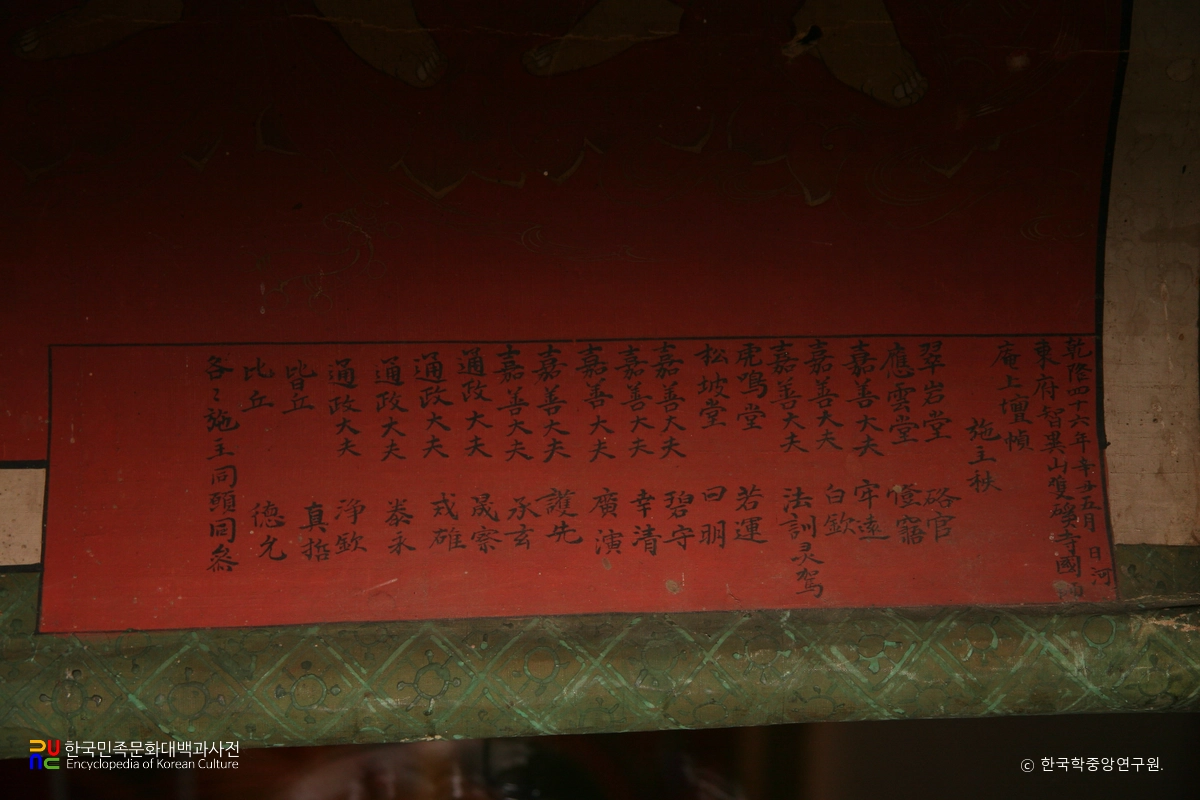 乾隆四十六年辛丑五月 日河
東府智異山雙磎寺國師
庵上壇幀
施主秩
翠岩堂 硌官
應雲堂
嘉善大夫 牢遠
嘉善大夫 白欽
嘉善大夫 法訓灵駕
虎鳴堂 若運
松坡堂 回明
嘉善大夫 碧守
嘉善大夫 幸清
嘉善大夫 廣演
嘉善大夫 護先
嘉善大夫 承玄
通政大夫 晟察
通政大夫 戎雄
通政大夫 泰永
通政大夫 淨欽
比丘 真哲
比丘 德允
各各施主同願同參
한국민족문화대백과사전
Encyclopedia of Korean Culture
ⓒ 한국학중앙연구원.